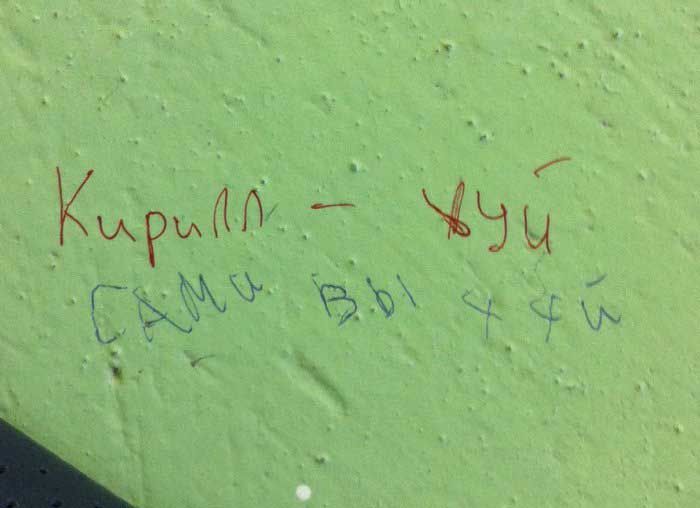 Кирилл - хуй
САМи ВЫ ххй